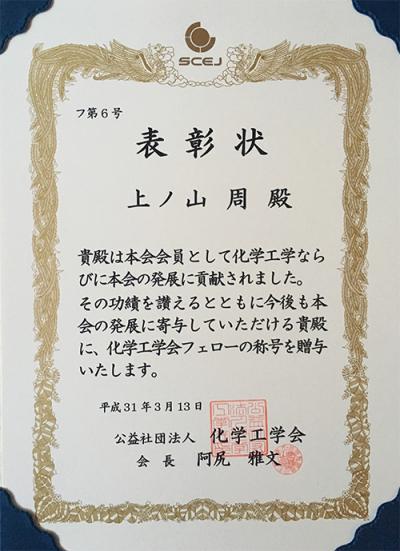 SCEJ
フ第6号
表彰状
上ノ山 周 殿
貴殿は本会会員として化学工学なら
びに本会の発展に貢献されました。
その功績を讃えるとともに今後も本
会の発展に寄与していただける貴殿
に、化学工学会フェローの称号を贈与
いたします。
平成31年3月13日
公益社団法人 化学工学会
会 長 阿尻 雅文